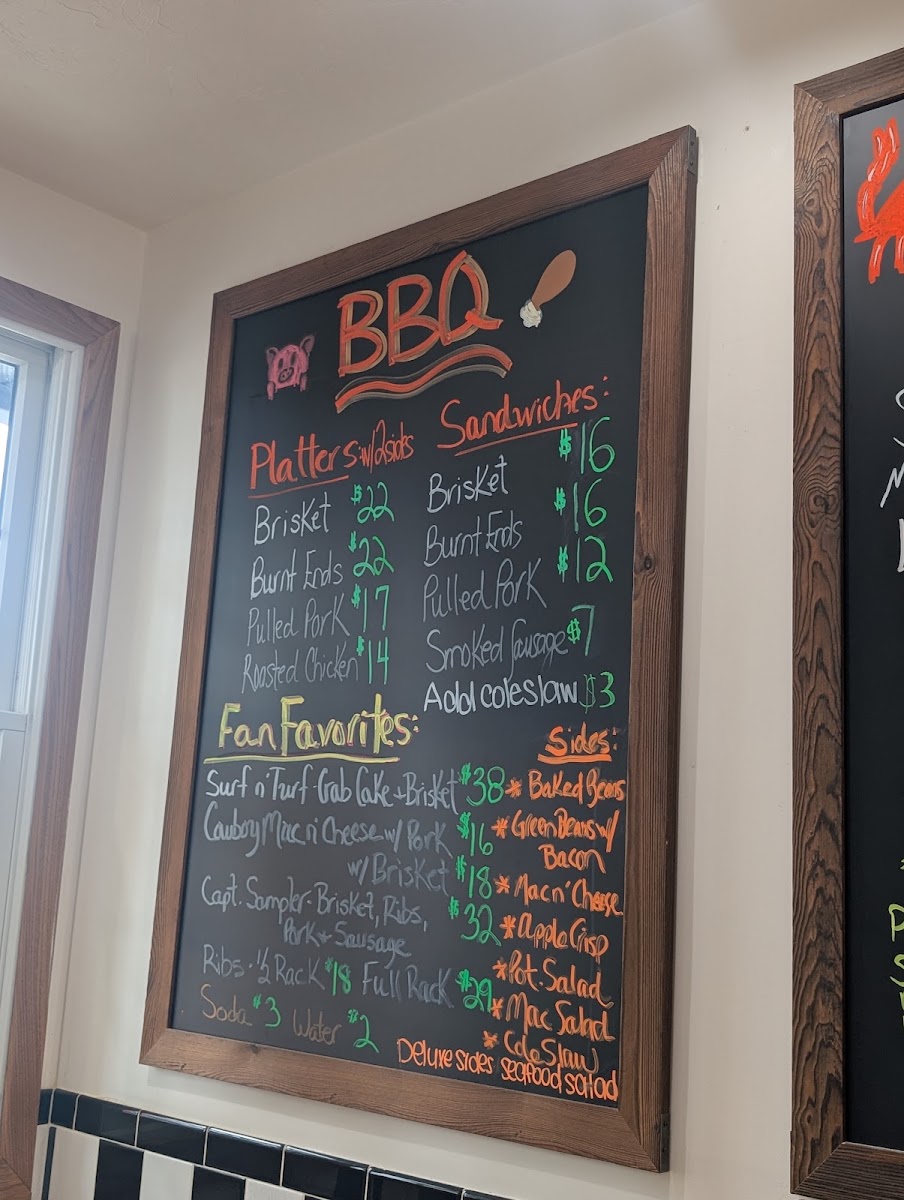 BBQ
Platters: w/2 sides
Brisket $22
Burnt Ends $22
Pulled Pork $17
Roasted Chicken $14
Sandwiches:
Brisket $16
Burnt Ends $16
Pulled Pork $12
Smoked Sausage $7
Add coleslaw $3
Fan Favorites:
Surf n' Turf Crab Cake + Brisket $38
Cowboy Mac n' Cheese w/ Pork $16
w/ Brisket $18
Capt. Sampler - Brisket, Ribs, $32
Pork + Sausage
Ribs - 1/2 Rack $18 Full Rack $29
Soda $3 Water $2
Sides:
* Baked Beans
* Green Beans w/
Bacon
* Mac n' Cheese
* Apple Crisp
* Pot. Salad
* Mac Salad
* Cole Slaw
Deluxe sides seafood salad